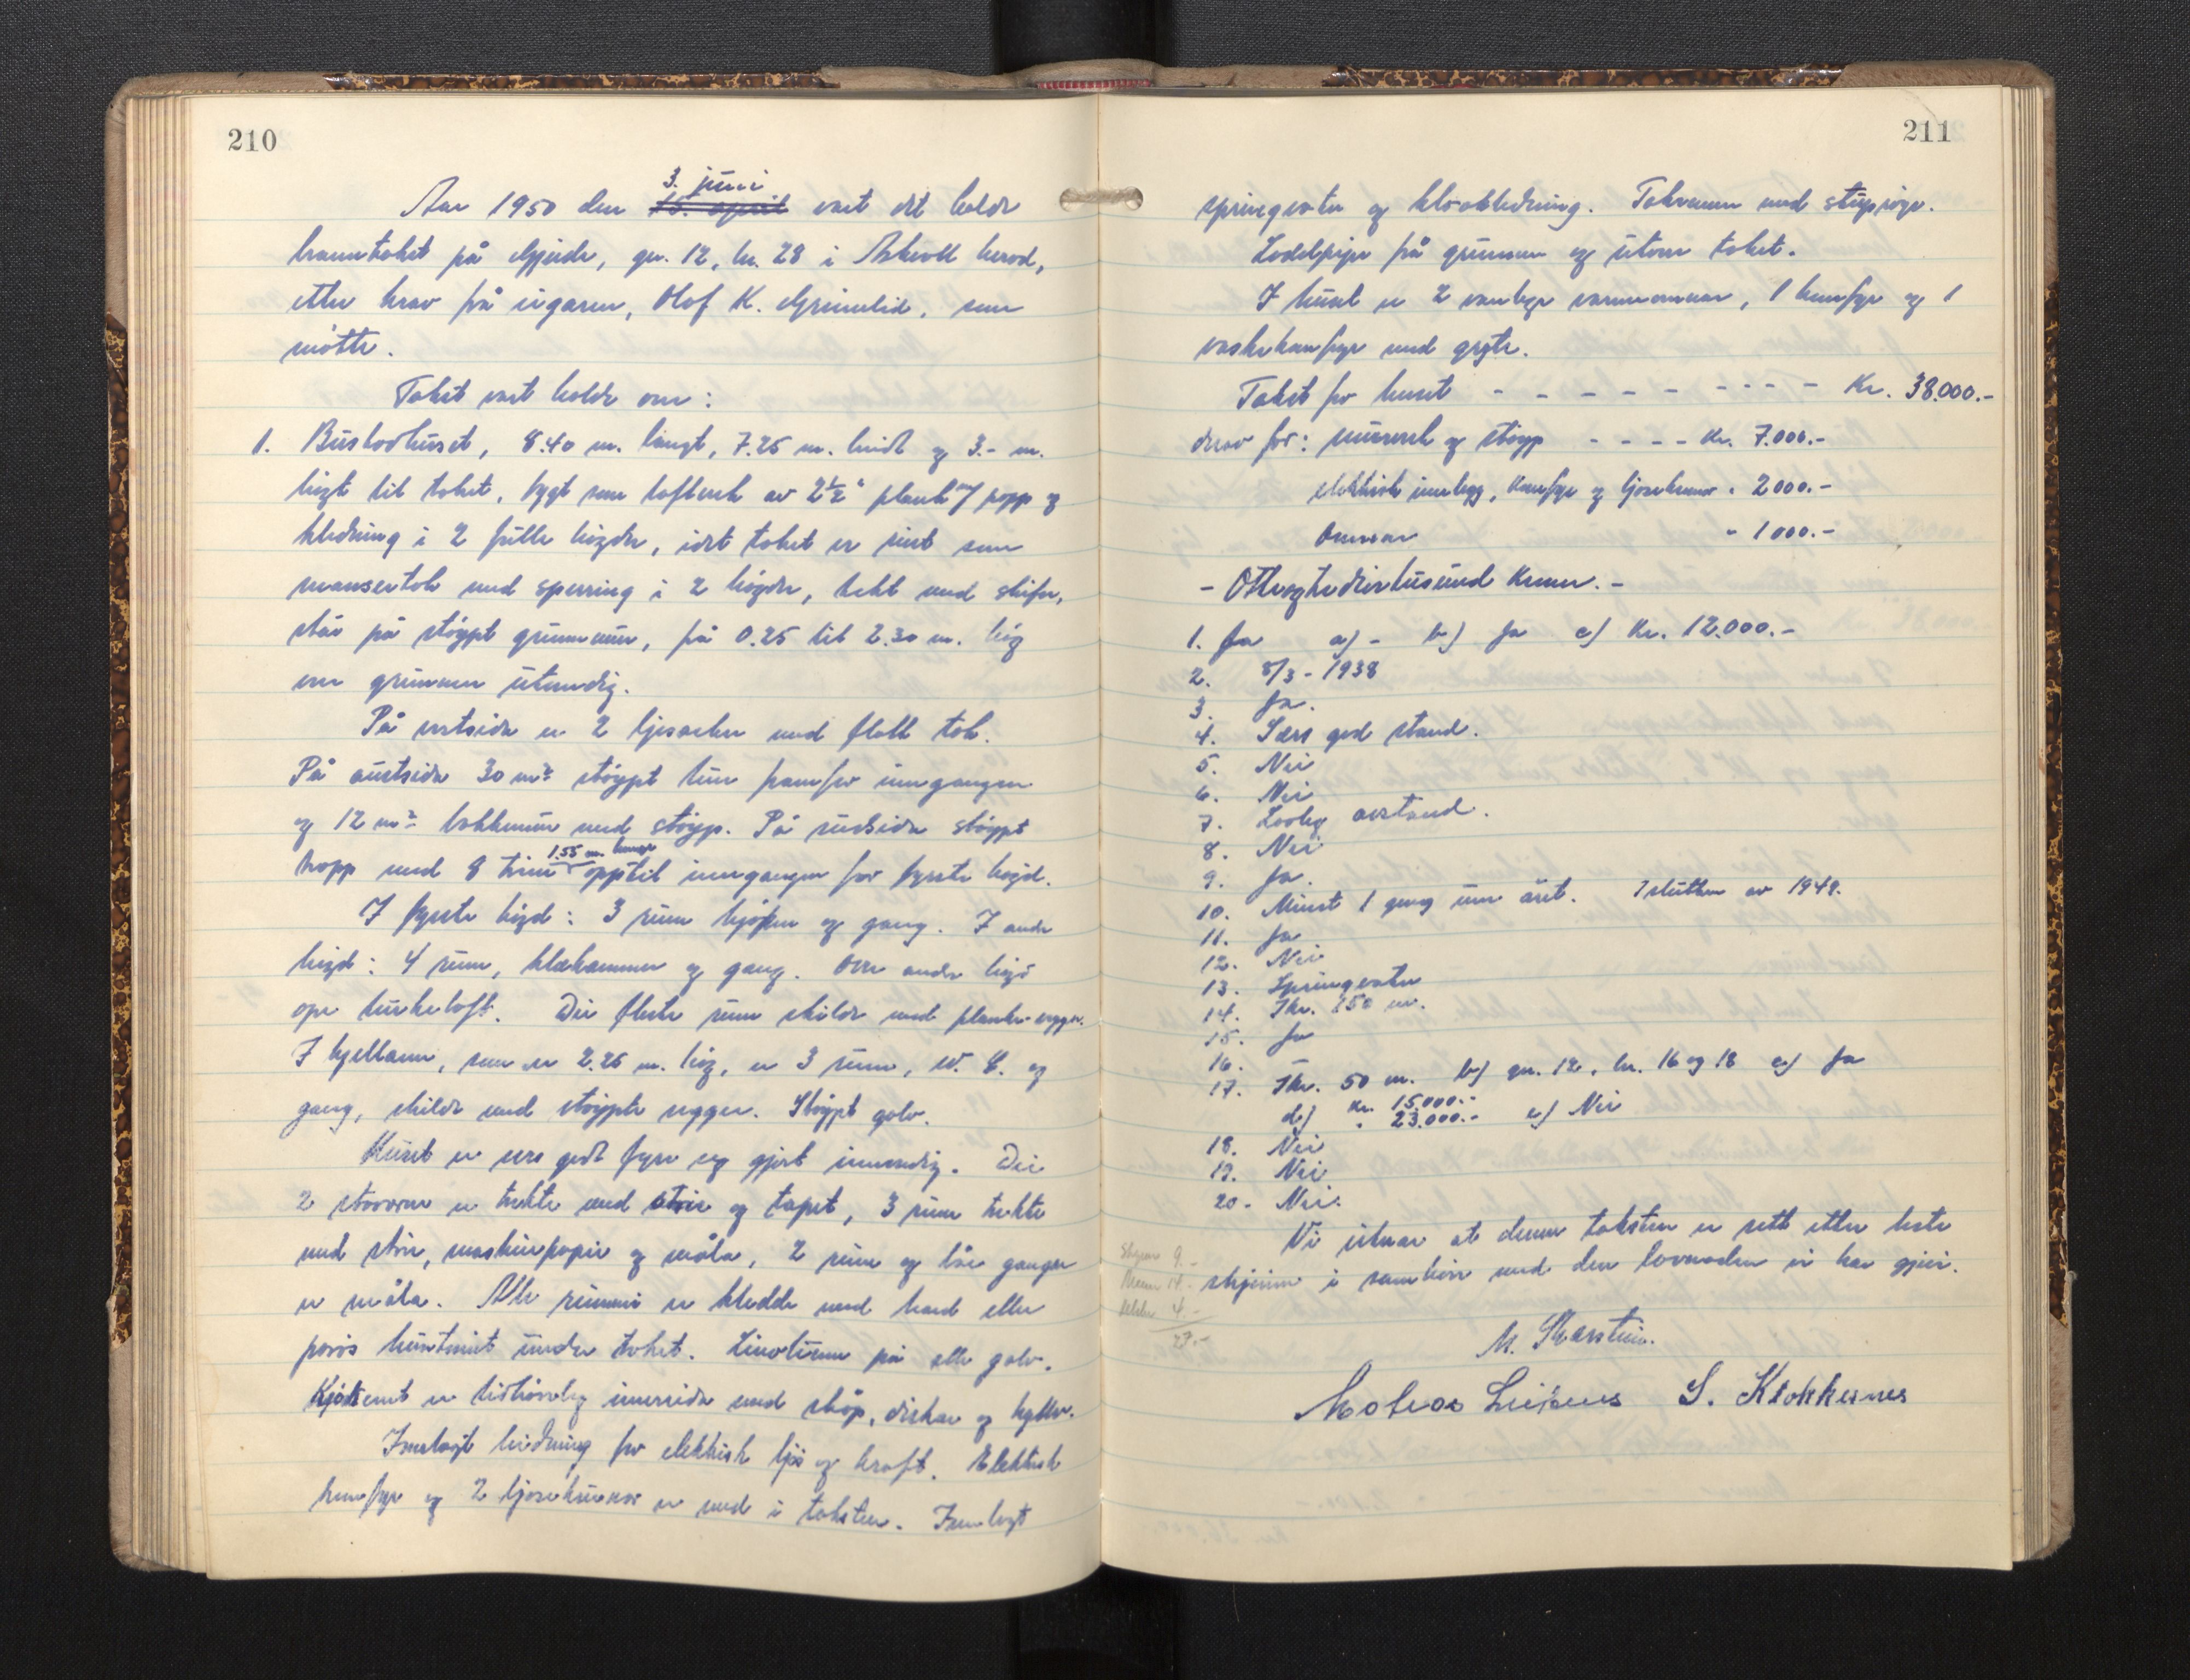 210
3. juni
Aar 1950 den 15. april vart det halde
branntakst på Gjerde, gn. 12, br. 28 i Askvoll herad,
etter krav frå eigaren, Olof K. Grimelid, som
møtte.
Takst vart halde over:
1. Bustadhuset, 8.40 m. langt, 7.25 m. breidt og 3.- m.
høgt til taket, bygt som lafteverk av 2½" plank m/ papp og
kledning i 2 fulle høgder, idet taket er reist som
mansertak med sperring i 2 høgder, tekt med skifer,
står på støypt grunnmur, frå 0.25 til 2.30 m. høg
over grunnen utvendig.
På vestsida er 2 ljosarker med flatt tak.
På austsida 30 m² støypt tun framfor inngangen
og 12 m² bakkemur med støyp. På sudsida støypt
1.55 m. lange
trapp med 8 trinn opp til inngangen for fyrste høgd.
I fyrste høgd: 3 rum kjøken og gang. I andre
høgd: 4 rum, klekammer og gang. Over andre høgd
ope turkeloft. Dei fleste rum skilde med planke-vegger.
I kjellaren, som er 2.25 m. høg, er 3 rum, W. C. og
gang, skilde med støypte vegger. Støypt golv.
Huset er vers godt fyre seg gjort innvendig. Dei
2 stovorne er trekte med strie og tapet, 3 rum trekte
med strie, maskinpapir og måla, 2 rum og tvo ganger
er måla. Alle rummi er kledde med hard eller
porøs huntonit under taket. Linoleum på alle golv.
Kjøkenet er tidhøveleg innreida med skåp, diskar og hyllor.
Innlagt leidning for elektrisk ljos og kraft. Elektrisk
komfyr og 2 ljosekrunor er med i taksten. Innlagt
211
springvatn og kloakledning. Takrenner med stuprøyr.
Lodelpipe frå grunnen og utover taket.
I huset er 2 vanlege varmeomnar, 1 komfyr og 1
vaskekomfyr med gryte.
Takst for huset - - - - - - - - - - Kr. 38.000.-
derav for: murverk og støyp - - - - Kr. 7.000.-
elektrisk innlegg, komfyr og ljosekrunor " 2000.-
Omnar " 1000.-
- Otteogtredivetusund kroner. -
1. Ja a) - b) Ja c) Kr. 12.000.-
2. 8/3 - 1938
3. Ja.
4. Sers god stand.
5. Nei
6. Nei
7. Lovleg avstand.
8. Nei
9. Ja.
10. Minst 1 gong um året. I slutten av 1949.
11. Ja
12. Nei
13. Springvatn
14. Ikr. 150 m.
15. Ja
16.
17. Ikr. 50 m. b) gn. 12, br. 16 og 18 c) Ja
d) Kr. 15.000.- " 23.000.- e) Nei
18. Nei
19. Nei
20. Nei.
Vi vitnar at denne taksten er sett etter beste
skjønn i samhøve med den lovnaden vi har gjeve.
9.-
14.-
4.-
27.-
M. Skarstein.
S. Klokkernes